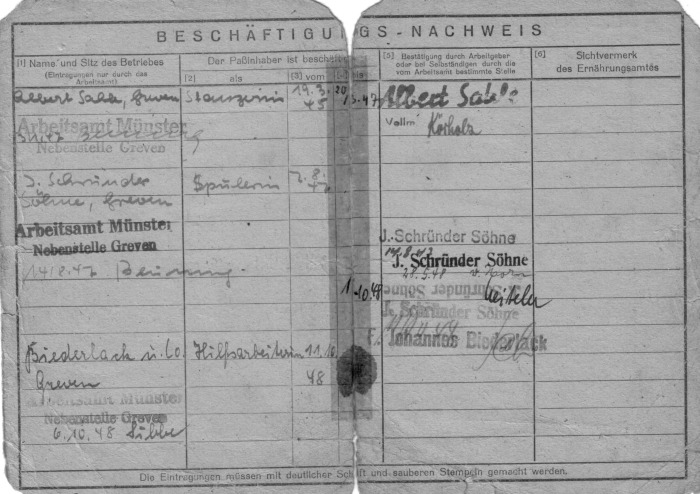 BESCHÄFTIGUNGS-NACHWEIS
[1] Name und Sitz des Betriebes
(Eintragungen nur durch das
Arbeitsamt)
Der Paßinhaber ist beschäf
[2] als
[3] vom
bis
[5] Bestätigung durch Arbeitgeber
oder bei Selbständigen durch die
vom Arbeitsamt bestimmte Stelle
[6] Sichtvermerk
des Ernährungsamtes
Albert Sahle, Greven
19.3.
45
Albert Sahle
Arbeitsamt Münster
Nebenstelle Greven
Vollm
J. Schründer
Söhne, Greven
Spulerin
7.8.
47
Arbeitsamt Münster
Nebenstelle Greven
14/8.47
J. Schründer Söhne
J. Schründer Söhne
28.5.48
1.10.48
J. Schründer Söhne
J. Schründer Söhne
F. Johannes Biederlack
Biederlack u. Co.
Greven
Hilfsarbeiterin
11.10
48
Arbeitsamt Münster
Nebenstelle Greven
6.10.48
Die Eintragungen müssen mit deutlicher Schrift und sauberen Stempeln gemacht werden.